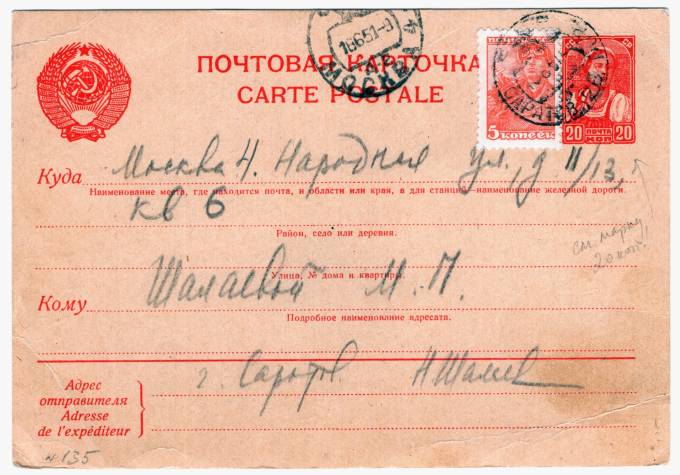 16651-9
МОСКВА
ПОЧТОВАЯ КАРТОЧКА
CARTE POSTALE
5 копеек
САРАТОВ
20 ПОЧТА 20
КОП
Куда Москва 4. Народная ул., д 11/13,
Наименование места, где находится почта, и области или края, а для станции—наименование железной дороги.
кв 6
Район, село или деревня.
см. марку
20 коп.!
Улица, № дома и квартиры.
Кому Шалаевой М. П.
Подробное наименование адресата.
г. Саратов Н Шалаев
Адрес
отправителя
Adresse
de l'expéditeur
N 135